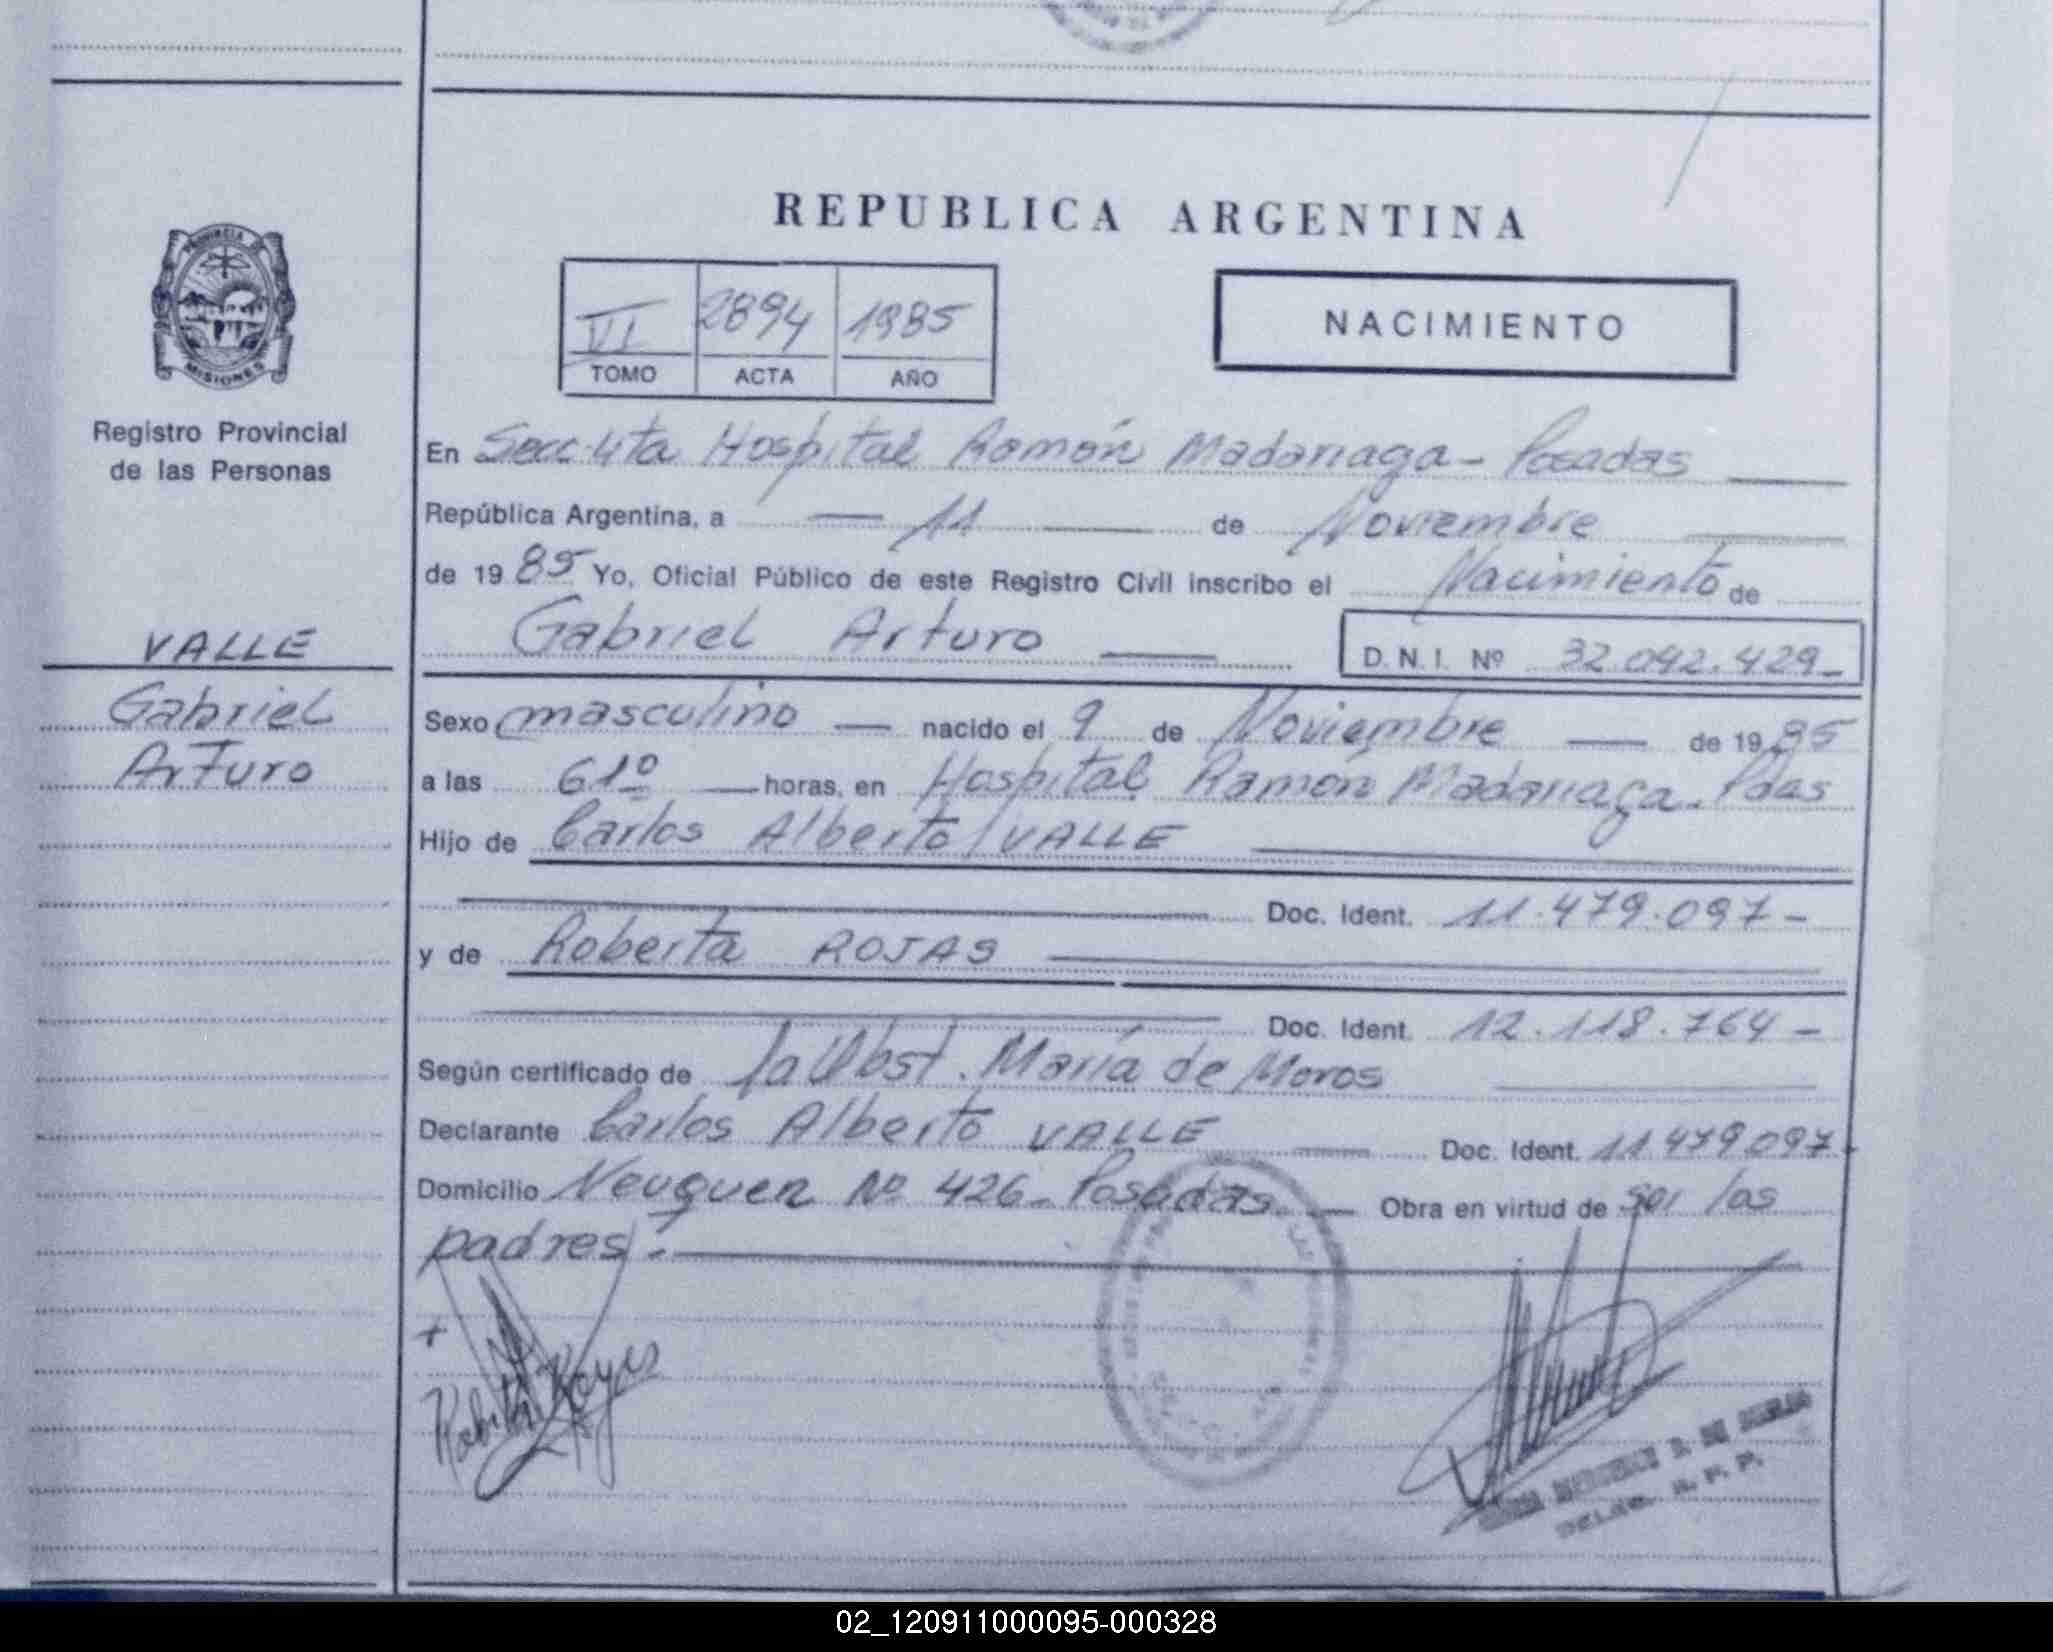 REPUBLICA ARGENTINA
PROVINCIA DE
MISIONES
Registro Provincial
de las Personas
VI 2894 1985
TOMO ACTA AÑO
NACIMIENTO
En Secc. 4ta Hospital Ramón Madariaga - Posadas
República Argentina, a 11 de Noviembre
de 1985 Yo, Oficial Público de este Registro Civil inscribo el Nacimiento de
Gabriel Arturo D.N.I. Nº 32.042.429-
VALLE
Gabriel
Arturo
Sexo masculino nacido el 9 de Noviembre de 1985
a las 61º horas, en Hospital Ramón Madariaga - Pdas
Hijo de Carlos Alberto VALLE
Doc. Ident. 11.479.097-
y de Roberta ROJAS
Doc. Ident. 12.118.764-
Según certificado de la Obst. María de Moros
Declarante Carlos Alberto VALLE Doc. Ident. 11479097-
Domicilio Neuquen Nº 426 - Posadas. Obra en virtud de ser los
padres.
02_120911000095-000328